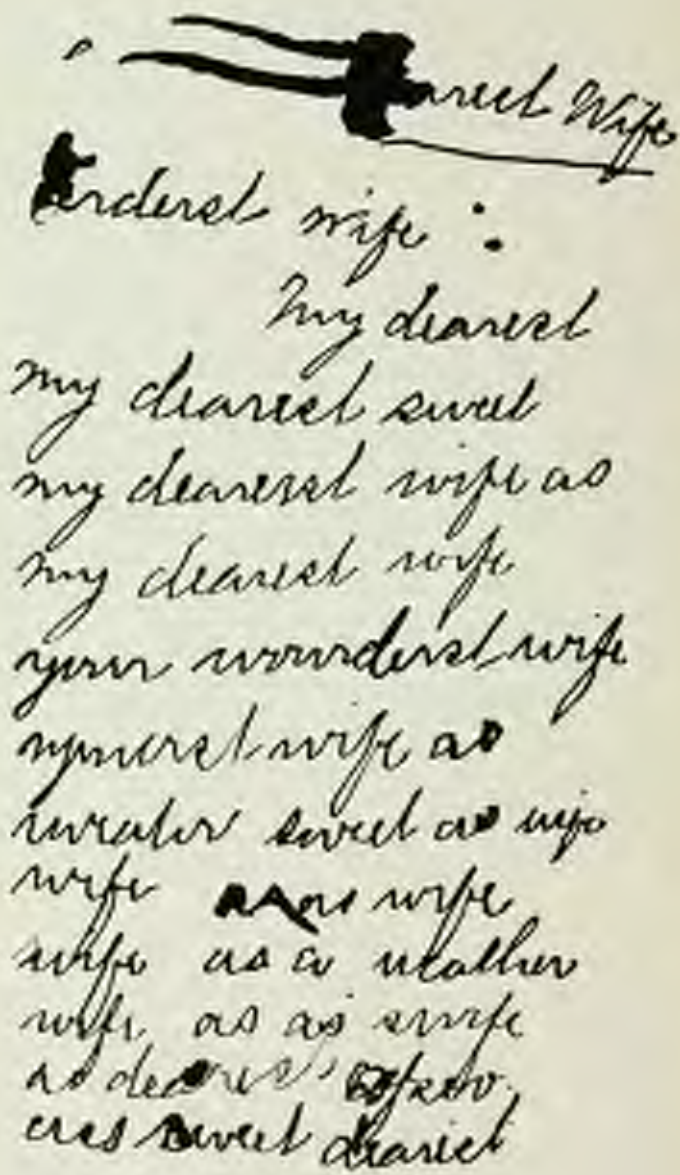 Dearest Wife
enderest wife :
My dearest
my dearest sweet
my dearesst wife as
my dearest wife
your wounderst wife
wife as
sweet as wife
wife as wife
wife as a weather
wife as as swife
as dearest
sweet dearest